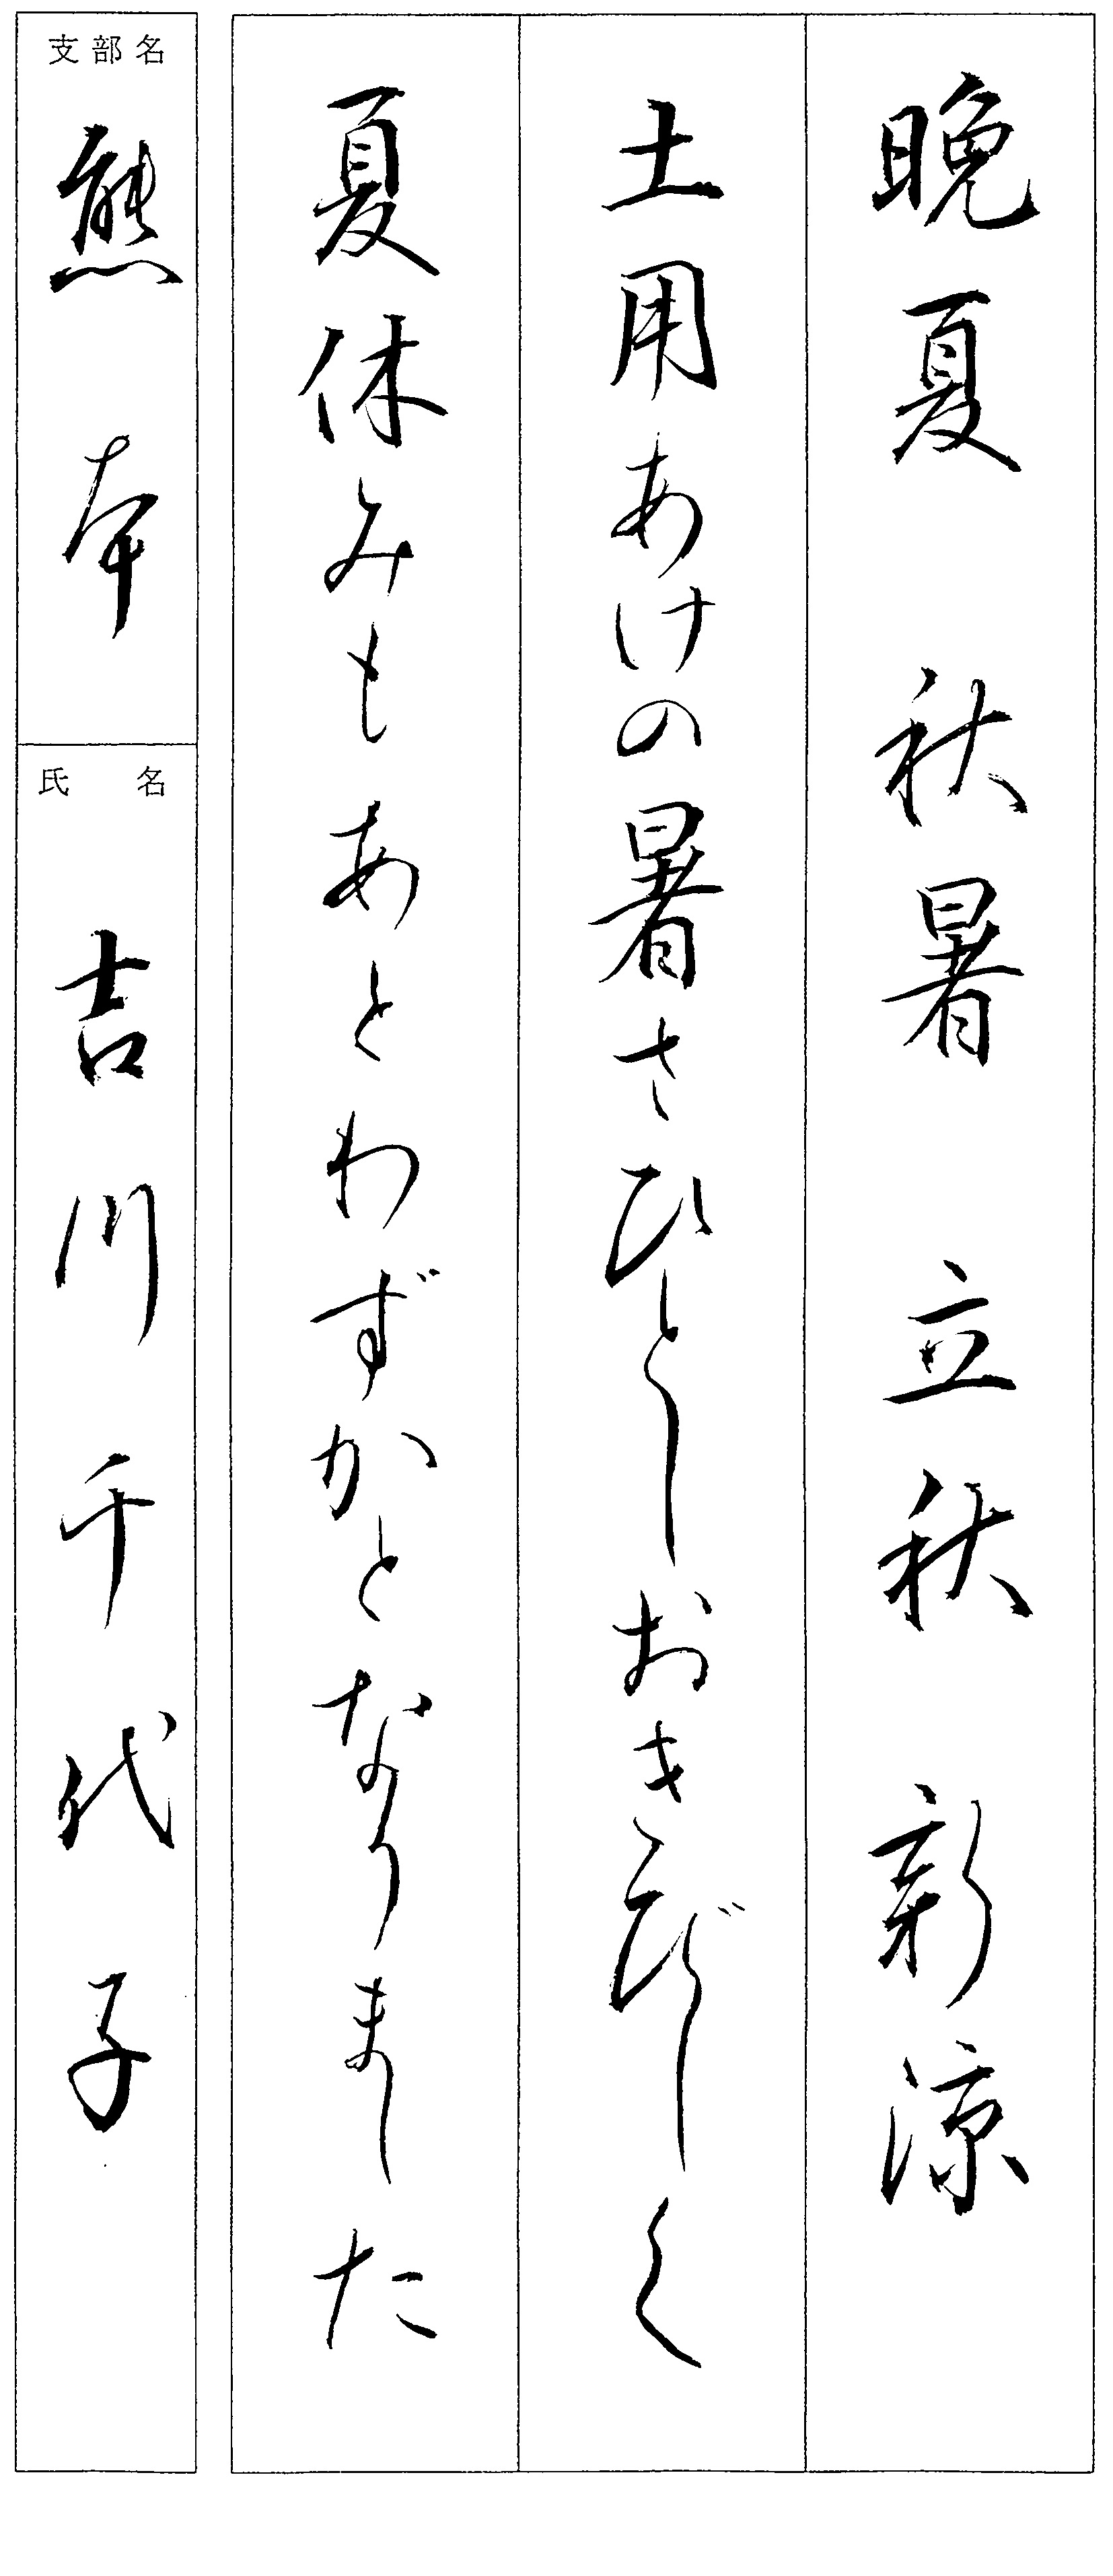 晩夏　秋暑　立秋　新涼
土用あけの暑さひとしおきびしく
夏休みもあとわずかとなりました
支部名
熊本
氏名
吉川千代子